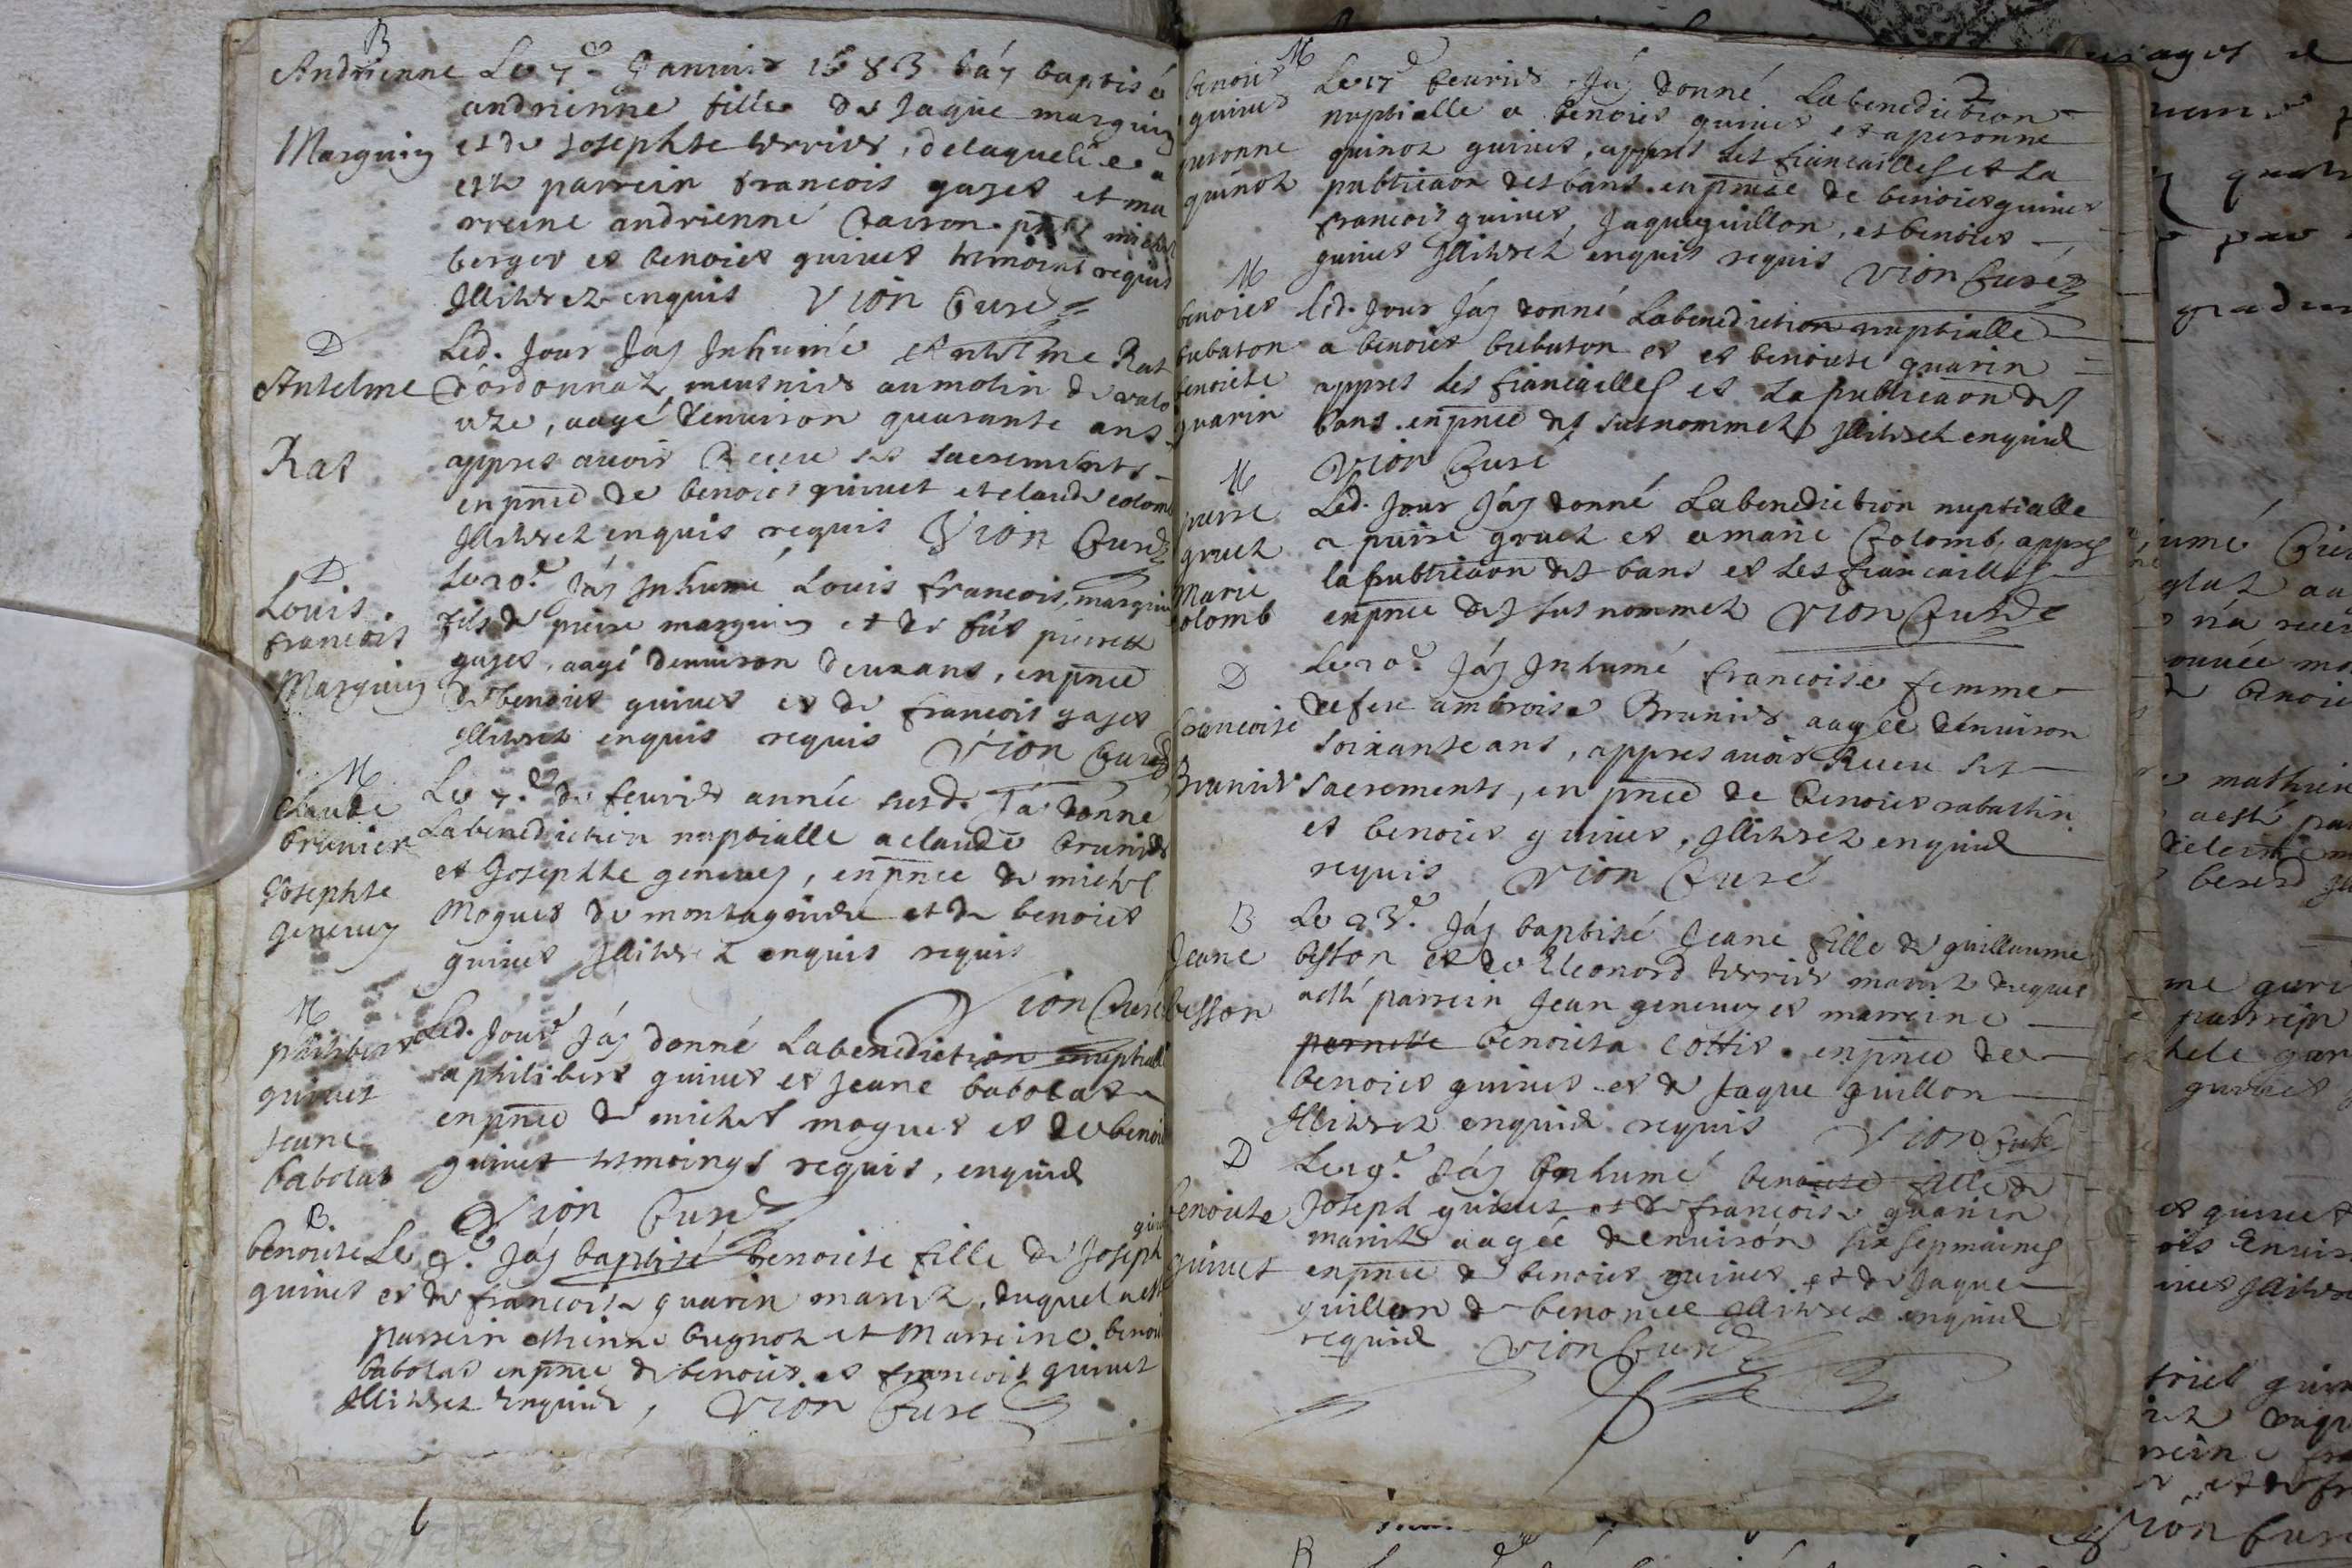 B
Andrienne
Marguin
Le 7e Januier 1683 Iáy baptisé
andrienne fille de Jaque marguin
et de Josephte terrier, delaquelle a
esté parrein francois gazet et ma
rreine andrienne Cairon pnts michel
berger et benoiet guinet tesmoins requis
Illiterez enquis Vion Curé
D
Antelme
Rat
Led. Jour Iáy Inhumé Antelme Rat
d'ordonnaz, meusnier au molin de valo
uze, aagé denuiron quarante ans
appres auoir Receu ses sacrements
en pnce de benoiet guinet et claude colomb
Illiterez enquis requis Vion Curé
D
Louis
francois
Marguin
Le 20e Iáy Inhumé Louis francois, marguin
fils de pierre marguin et de fue pierrette
gazet, aagé denuiron deux ans, en pnce
de benoiet guinet et de francois gazet
Illiterez enquis requis Vion Curé
M
Claude
brunier
Josephte
geneuey
Le 7e de feurier année susd. Iá donné
La benediction nuptialle a claude brunier
et Josephte geneuey, en pnce de michel
Moguet de montagnieu et de benoiet
guinet Illiterez enquis requis
Vion Curé
M
philibert
guinet
Jeane
babolat
Led. Jour Iáy donné La benediction nuptialle
a philibert guinet et Jeane babolat
en pnce de michel moguet et de benoiet
guinet tesmoings requis, enquis
Vion Curé
B
benoite
guinet
Le 9e Iáy baptisé benoite fille de Joseph guinet
et de francoise guarin mariez, duquel a esté
parrein estienne bugnoz et Marreine benoite
babolat en pnce de benoiet et francois guinet
Illiterez Enquis, Vion Curé
M
benoiet
guinet
peronne
guinoz
Le 17e feurier Iáy donné La benediction
nuptialle a benoiet guinet et a peronne
guinoz guinet, appres les fiancailles et La
publicaon des bans en pnce de benoiet guinet
francois guinet, Jaque guillon, et benoiet
guinet Illiterez enquis requis Vion Curé
M
benoiet
bubaton
benoite
guarin
Led. Jour Iáy donné La benediction nuptialle
a benoiet bubaton et et benoite guarin
appres les fiancailles et La publicaon des
bans en pnce des susnommez Illiterez enquis
Vion Curé
M
pierre
gruez
Marie
Colomb
Led. Jour Iáy donné La benediction nuptialle
a pierre gruez et a marie Colomb, appres
la publicaon des bans et Les fiancailles
en pnce des susnommez Vion Curé
D
francoise
Brunier
Le 20e Iáy Inhumé francoise femme
de feu ambroise Brunier aagée denuiron
soixante ans, appres auoir Receu ses
sacrements, en pnce de benoiet rabastin
et benoiet guinet, Illiterez enquis
requis Vion Curé
B
Jeane
besson
Le 23e Iáy baptisé Jeane fille de guillaume
besson et de Eleonord terrier mariez duquel
a esté parrein Jean geneuey et marreine
pernette benoita cottis en pnce de
benoiet guinet et de Jaque guillon
Illiterez enquis requis Vion Curé
D
benoite
guinet
Le 29e Iáy Inhumé benoite fille de
Joseph guinet et de francoise guarin
mariez aagée denuiron six sepmaines
en pnce de benoiet guinet et de Jaque
guillon de benonce Illiterez enquis
requis Vion Curé